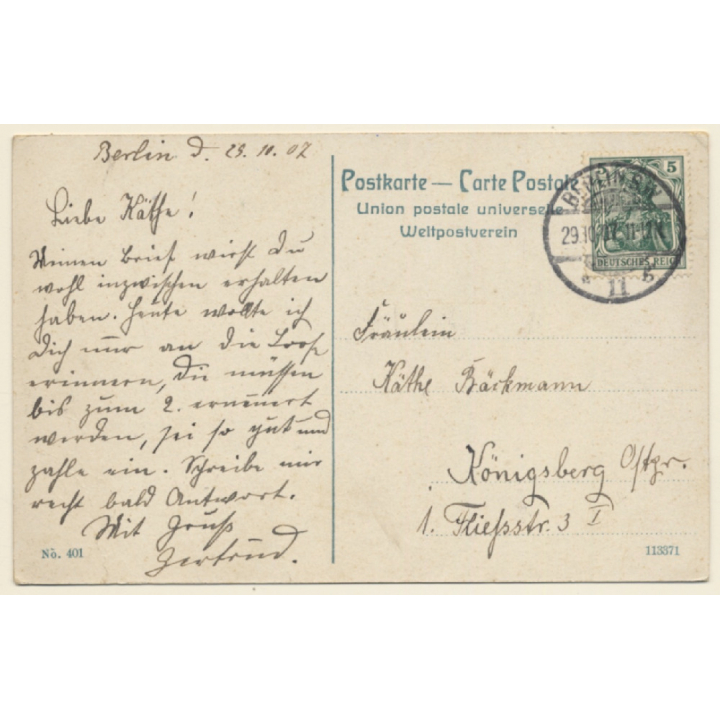 Berlin d. 29.10.07
Liebe Käthe!
Meinen Brief wirst Du
wohl inzwischen erhalten
haben. Heute wollte ich
Dich nur an die Loose
erinnern, die müssen
bis zum 2. erneuert
werden, sei so gut und
zahle ein. Schreibe mir
recht bald Antwort.
Mit Gruß
Gertrud.
No. 401
Postkarte — Carte Postale
Union postale universelle
Weltpostverein
5
DEUTSCHES REICH
BERLIN S.W.
29.10.07. 11-12
11
Fräulein
Käthe Bäckmann
Königsberg Ostpr.
1. Fließstr. 3 I
113371